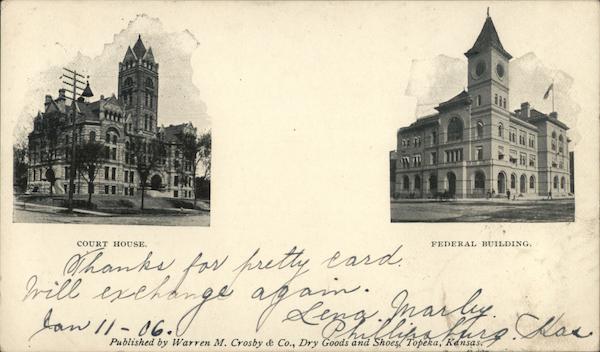 COURT HOUSE.
FEDERAL BUILDING.
Thanks for pretty card.
Will exchange again.
Lena Marly.
Jan 11-06.
Phillipsburg. Kas
Published by Warren M. Crosby & Co., Dry Goods and Shoes, Topeka, Kansas.